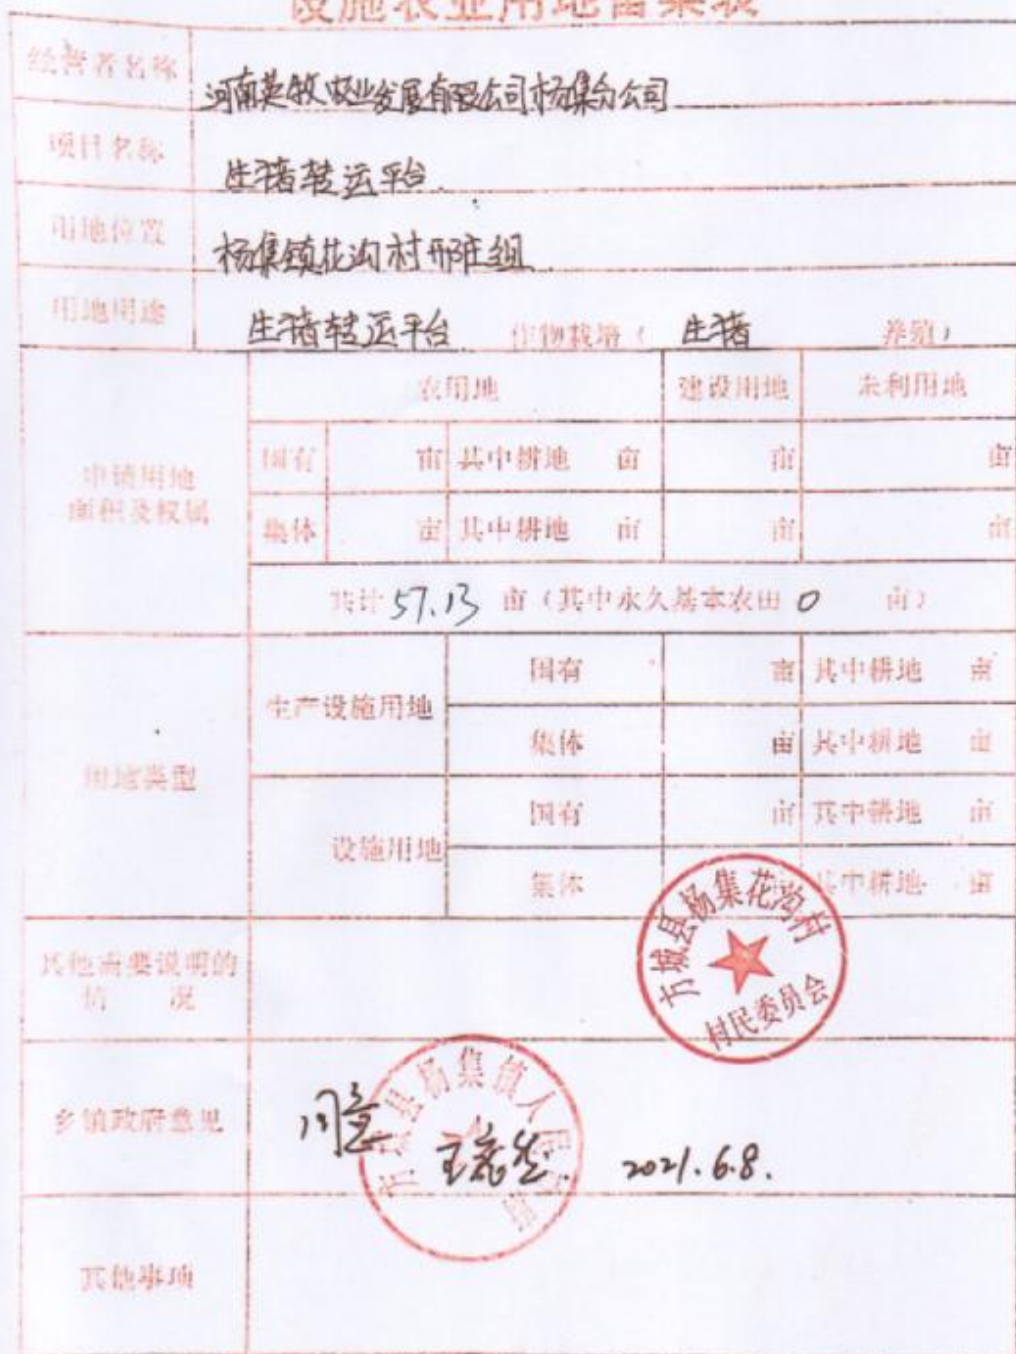 设施农业用地备案表
经营者名称 河南英牧牧业发展有限公司杨集分公司
项目名称 生猪转运平台
用地位置 杨集镇花沟村邢庄组
用地用途 生猪转运平台 作物栽培（ 生猪 养殖）
农用地 建设用地 未利用地
申请用地
面积及权属
国有 亩 其中耕地 亩 亩 亩
集体 亩 其中耕地 亩 亩 亩
共计 57.13 亩（其中永久基本农田 0 亩）
用地类型
生产设施用地 国有 亩 其中耕地 亩
集体 亩 其中耕地 亩
设施用地 国有 亩 其中耕地 亩
集体 其中耕地 亩
方城县杨集花沟村
村民委员会
其他需要说明的
情 况
乡镇政府意见 同意 2021.6.8.
方城县杨集镇人民政府
其他事项